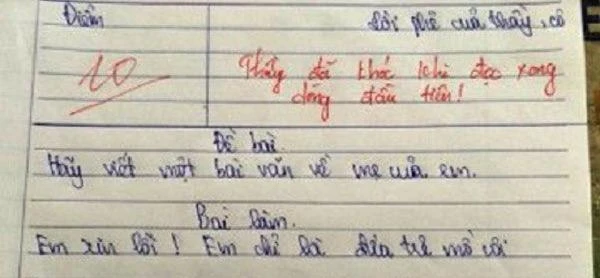 Điểm
Lời phê của thầy, cô
10
Thầy đã khóc khi đọc xong
dòng đầu tiên!
Đề bài.
Hãy viết một bài văn về mẹ của em.
Bài làm.
Em xin lỗi! Em chỉ là đứa trẻ mồ côi